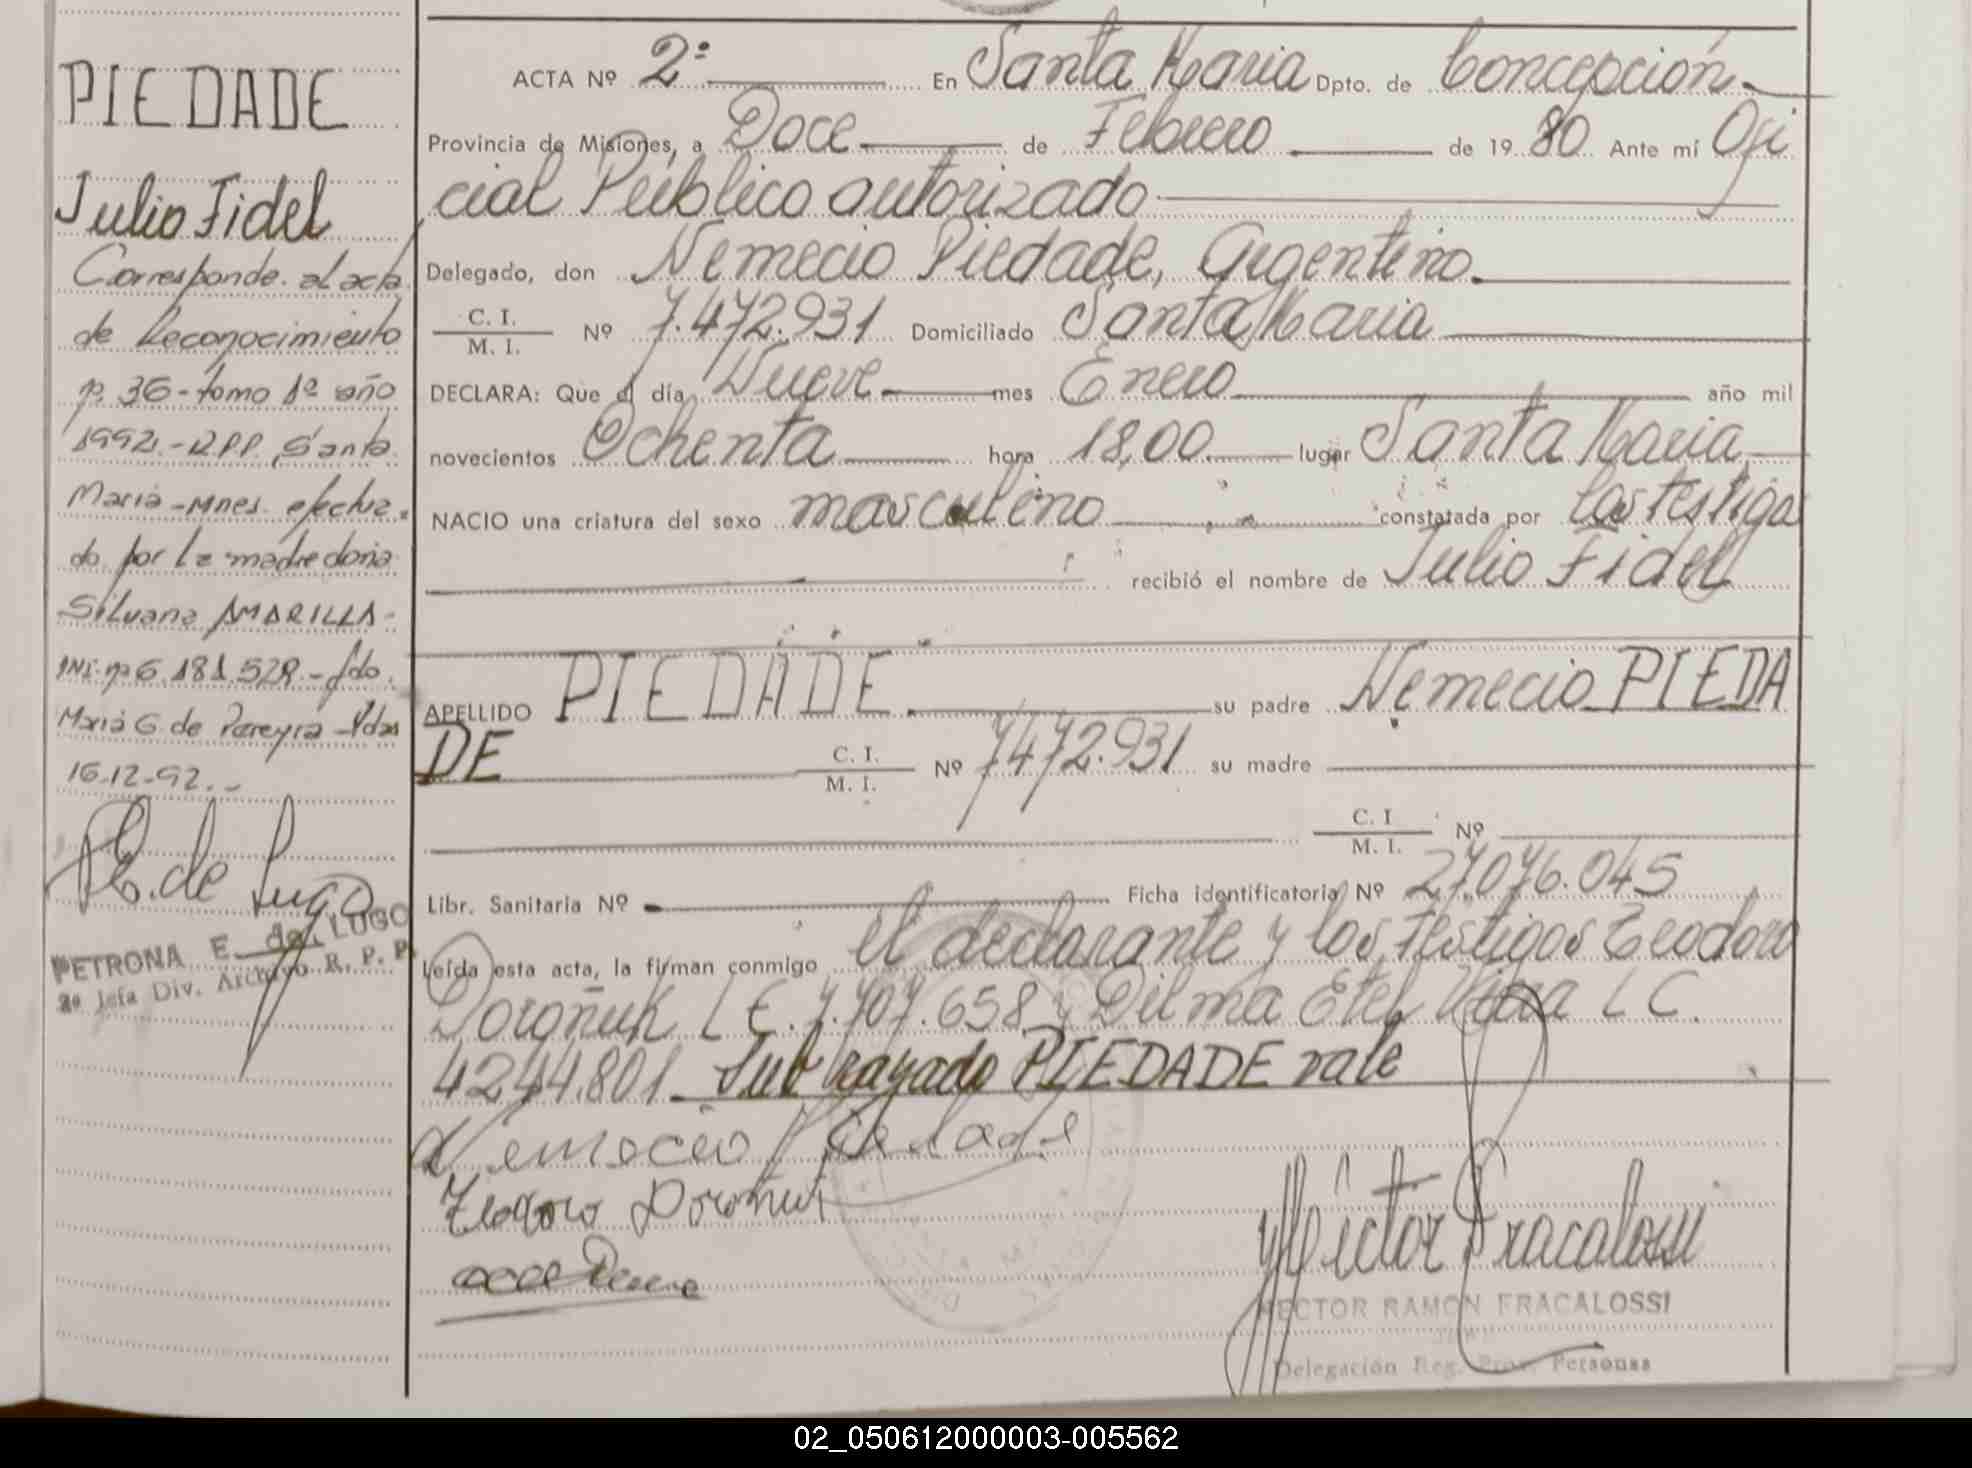 PIEDADE
Julio Fidel
Corresponde al acta
de Reconocimiento
nº 36 - tomo 1º año
1992.- R.P.P. Santa
María - Mnes. efectua.
do por la madre doña
Silvana AMARILLA -
DNI. nº 6.181.528.- fdo.
María G. de Pereyra - Pdas
16-12-92.-
P.E. de Lugo
PETRONA E. de LUGO
2ª Jefa Div. Archivo R. P. P.
ACTA Nº 2º En Santa Maria Dpto. de Concepción
Provincia de Misiones, a Doce de Febrero de 19 80 Ante mí Ofi
cial Público autorizado
Delegado, don Nemecio Piedade, Argentino.
C. I. / M. I. Nº 7.472.931 Domiciliado Santa Maria
DECLARA: Que el día Nueve mes Enero año mil
novecientos Ochenta hora 18,00 lugar Santa Maria
NACIO una criatura del sexo masculino constatada por los testigos
recibió el nombre de Julio Fidel
APELLIDO PIEDADE su padre Nemecio PIEDA
DE C. I. / M. I. Nº 7472.931 su madre
C. I / M. I. Nº
Libr. Sanitaria Nº Ficha identificatoria Nº 27.076.045
Leída esta acta, la firman conmigo el declarante y los testigos Teodoro
Doroñuk L E. 7.707.658 y Dilma Etel Viera L C.
4244.801. Sub rayado PIEDADE vale
Nemecio Piedade
Teodoro Doroñuk
Héctor Fracalossi
HECTOR RAMON FRACALOSSI
Delegación Reg. Prov. Personas
02_050612000003-005562